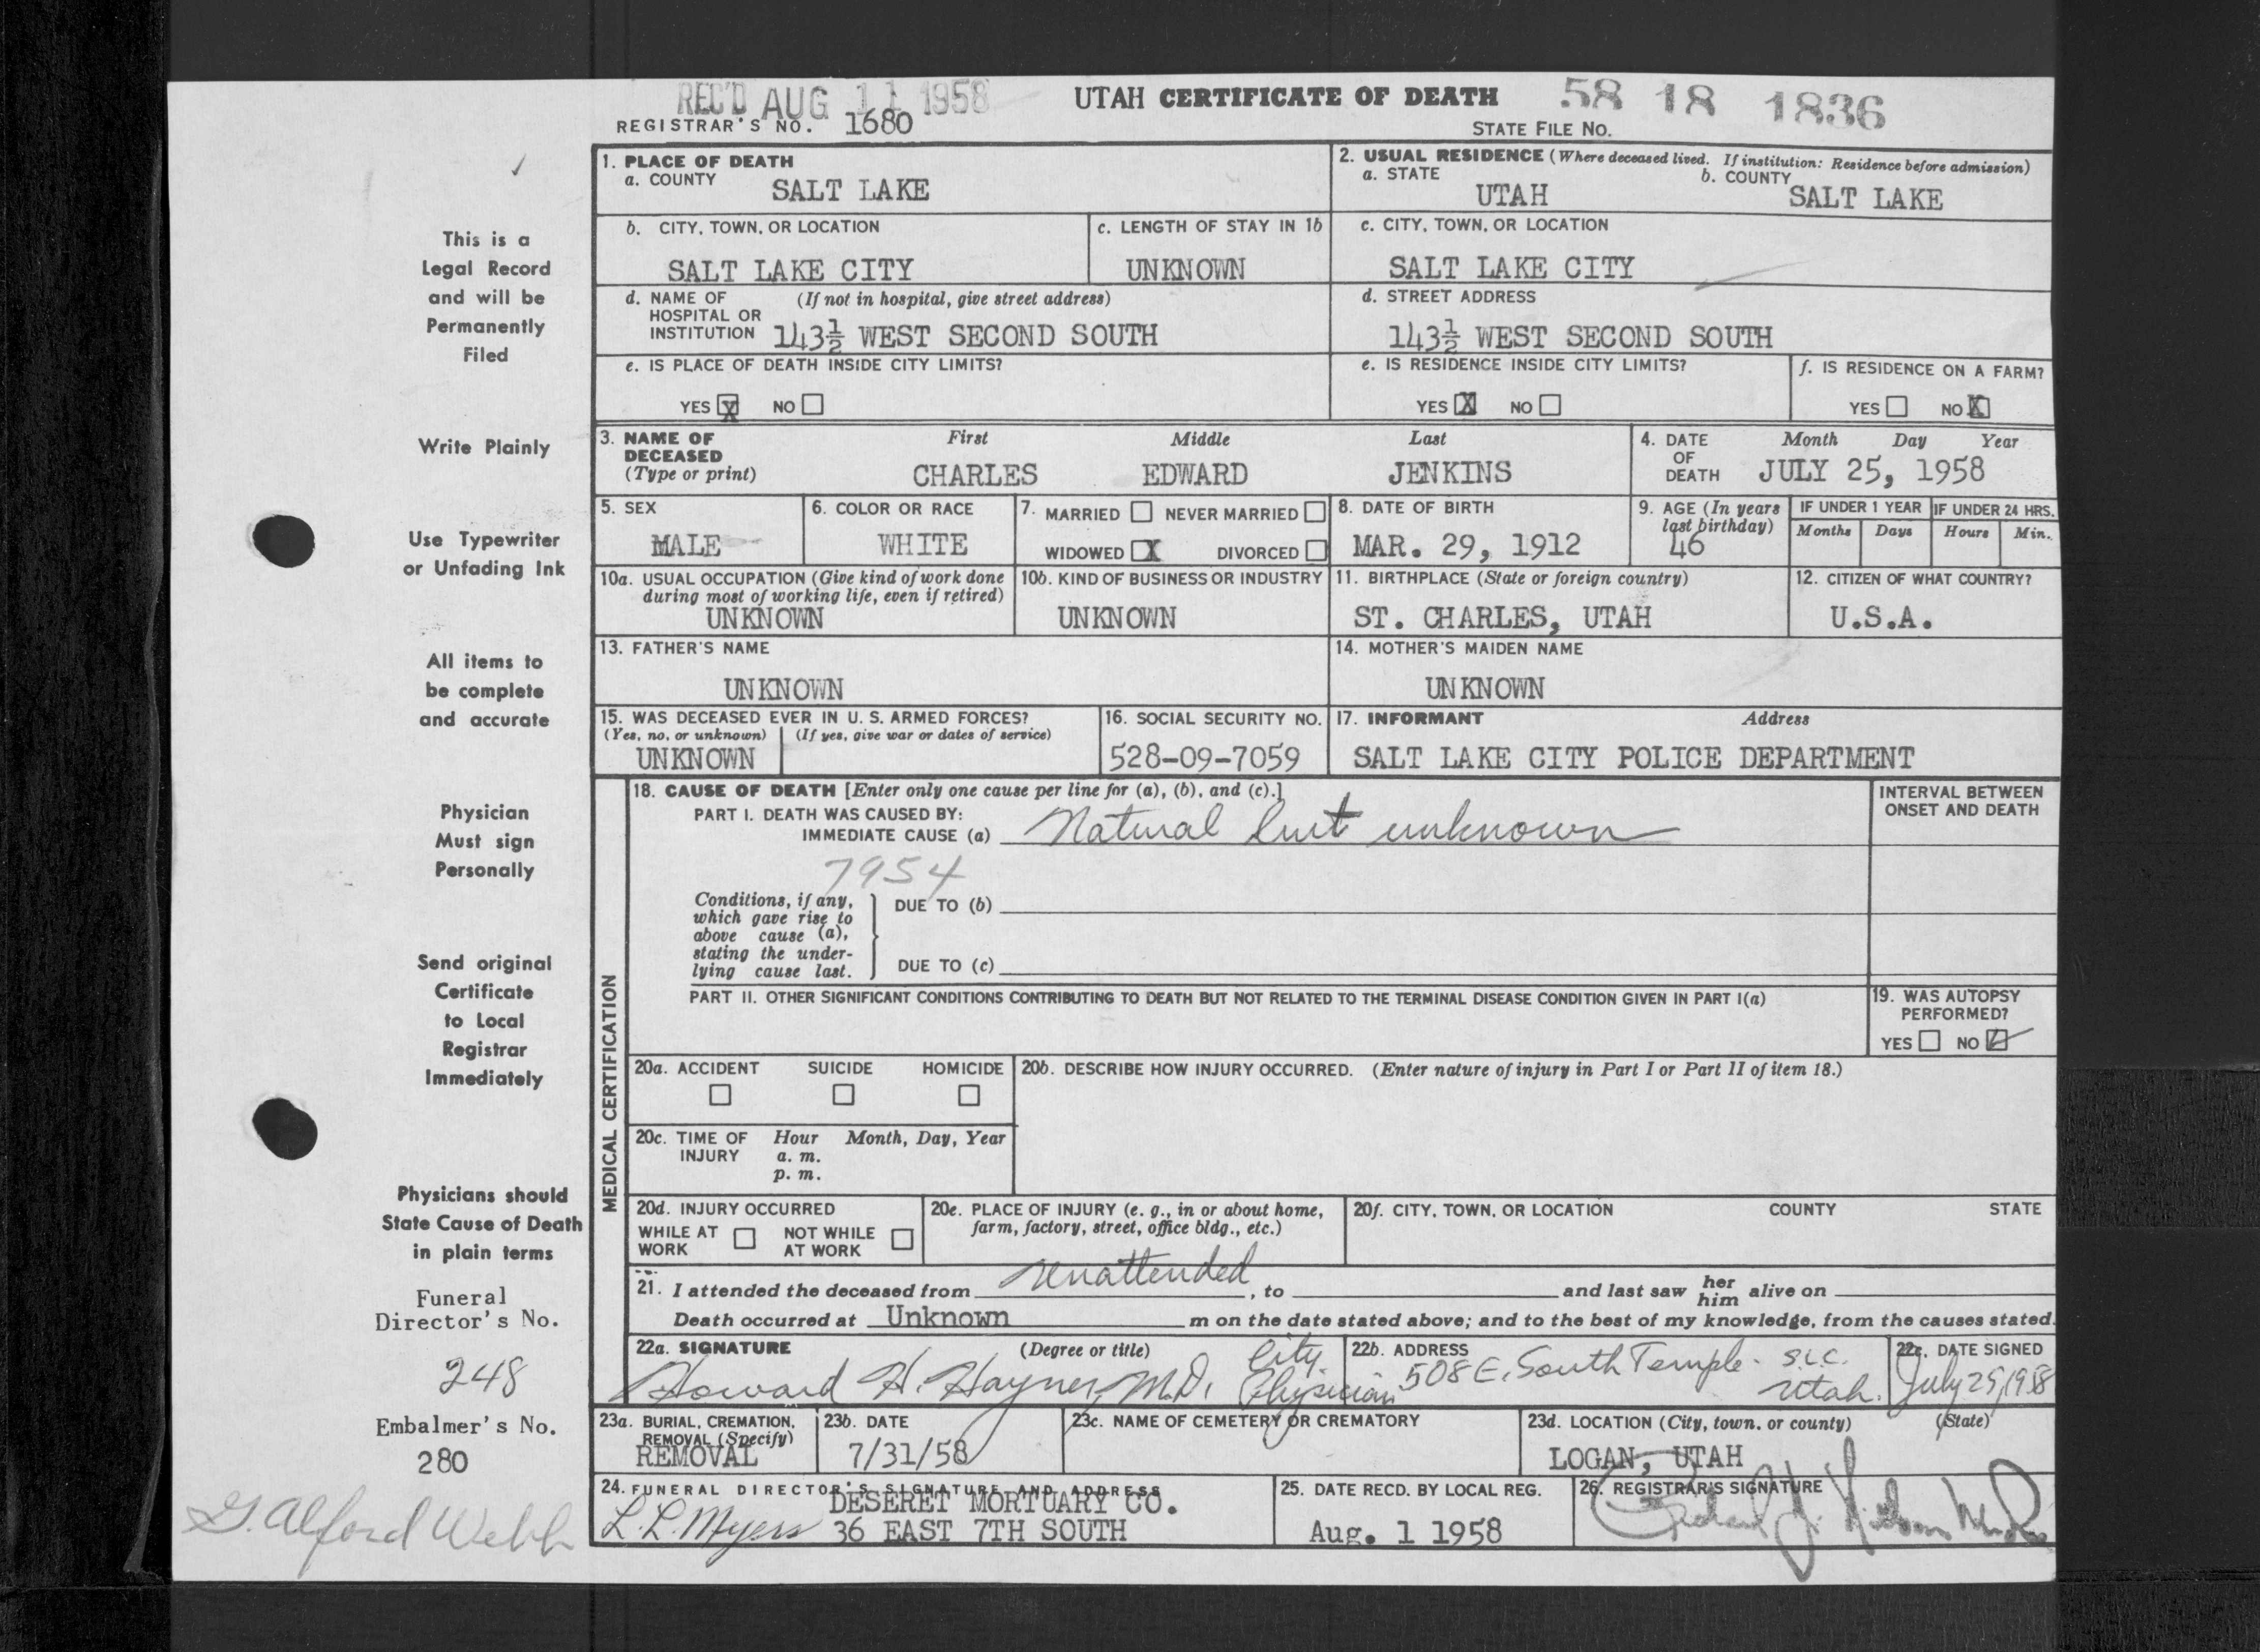 REC'D AUG 11 1958
UTAH CERTIFICATE OF DEATH
58 18 1836
REGISTRAR'S NO. 1680
STATE FILE NO.
This is a
Legal Record
and will be
Permanently
Filed
Write Plainly
Use Typewriter
or Unfading Ink
All items to
be complete
and accurate
Physician
Must sign
Personally
Send original
Certificate
to Local
Registrar
Immediately
Physicians should
State Cause of Death
in plain terms
Funeral
Director's No.
248
Embalmer's No.
280
G. Alford Webb
1. PLACE OF DEATH
a. COUNTY SALT LAKE
2. USUAL RESIDENCE (Where deceased lived. If institution: Residence before admission)
a. STATE UTAH
b. COUNTY SALT LAKE
b. CITY, TOWN, OR LOCATION
SALT LAKE CITY
c. LENGTH OF STAY IN 1b
UNKNOWN
c. CITY, TOWN, OR LOCATION
SALT LAKE CITY
d. NAME OF (If not in hospital, give street address)
HOSPITAL OR
INSTITUTION 143½ WEST SECOND SOUTH
d. STREET ADDRESS
143½ WEST SECOND SOUTH
e. IS PLACE OF DEATH INSIDE CITY LIMITS?
YES X NO
e. IS RESIDENCE INSIDE CITY LIMITS?
YES X NO
f. IS RESIDENCE ON A FARM?
YES NO X
3. NAME OF
DECEASED
(Type or print)
First Middle Last
CHARLES EDWARD JENKINS
4. DATE
OF
DEATH
Month Day Year
JULY 25, 1958
5. SEX
MALE
6. COLOR OR RACE
WHITE
7. MARRIED NEVER MARRIED
WIDOWED X DIVORCED
8. DATE OF BIRTH
MAR. 29, 1912
9. AGE (In years
last birthday)
46
IF UNDER 1 YEAR
Months Days
IF UNDER 24 HRS.
Hours Min.
10a. USUAL OCCUPATION (Give kind of work done
during most of working life, even if retired)
UNKNOWN
10b. KIND OF BUSINESS OR INDUSTRY
UNKNOWN
11. BIRTHPLACE (State or foreign country)
ST. CHARLES, UTAH
12. CITIZEN OF WHAT COUNTRY?
U.S.A.
13. FATHER'S NAME
UNKNOWN
14. MOTHER'S MAIDEN NAME
UNKNOWN
15. WAS DECEASED EVER IN U. S. ARMED FORCES?
(Yes, no, or unknown) (If yes, give war or dates of service)
UNKNOWN
16. SOCIAL SECURITY NO.
528-09-7059
17. INFORMANT Address
SALT LAKE CITY POLICE DEPARTMENT
MEDICAL CERTIFICATION
18. CAUSE OF DEATH [Enter only one cause per line for (a), (b), and (c).]
PART I. DEATH WAS CAUSED BY:
IMMEDIATE CAUSE (a) Natural but unknown
INTERVAL BETWEEN
ONSET AND DEATH
7954
Conditions, if any,
which gave rise to
above cause (a),
stating the under-
lying cause last.
DUE TO (b)
DUE TO (c)
PART II. OTHER SIGNIFICANT CONDITIONS CONTRIBUTING TO DEATH BUT NOT RELATED TO THE TERMINAL DISEASE CONDITION GIVEN IN PART I(a)
19. WAS AUTOPSY
PERFORMED?
YES NO
20a. ACCIDENT SUICIDE HOMICIDE
20b. DESCRIBE HOW INJURY OCCURRED. (Enter nature of injury in Part I or Part II of item 18.)
20c. TIME OF Hour Month, Day, Year
INJURY a. m.
p. m.
20d. INJURY OCCURRED
WHILE AT NOT WHILE
WORK AT WORK
20e. PLACE OF INJURY (e. g., in or about home,
farm, factory, street, office bldg., etc.)
20f. CITY, TOWN, OR LOCATION COUNTY STATE
21. I attended the deceased from unattended, to and last saw her him alive on
Death occurred at Unknown m on the date stated above; and to the best of my knowledge, from the causes stated.
22a. SIGNATURE (Degree or title)
Howard H. Hayner, M.D. City Physician
22b. ADDRESS
508 E. South Temple - S.L.C.
Utah.
22c. DATE SIGNED
July 29, 1958
23a. BURIAL, CREMATION,
REMOVAL (Specify)
REMOVAL
23b. DATE
7/31/58
23c. NAME OF CEMETERY OR CREMATORY
23d. LOCATION (City, town, or county) (State)
LOGAN, UTAH
24. FUNERAL DIRECTOR'S SIGNATURE AND ADDRESS
DESERET MORTUARY CO.
L. L. Myers 36 EAST 7TH SOUTH
25. DATE RECD. BY LOCAL REG.
Aug. 1 1958
26. REGISTRAR'S SIGNATURE